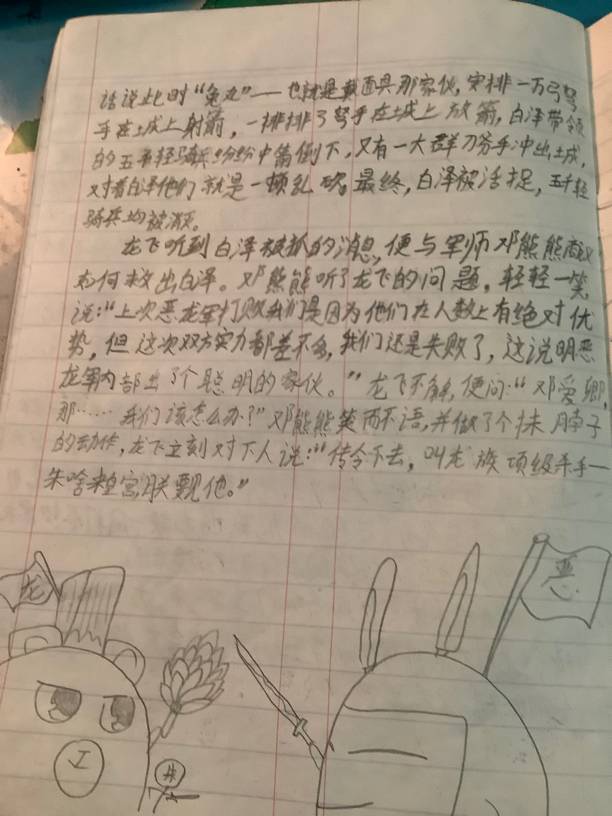 话说此时“兔丸”——也就是戴面具那家伙,安排一万弓弩
手在土城上射箭,一排排弓弩手在土城上放箭,白泽带领
的五千轻骑兵纷纷中箭倒下,又有一大群刀斧手冲出土城,
对着白泽他们就是一顿乱砍。最终,白泽被活捉,五千轻
骑兵均被消灭。
龙飞听到白泽被抓的消息,便与军师邓熊熊商议
如何救出白泽。邓熊熊听了龙飞的问题,轻轻一笑,
说:“上次恶龙军打败我们是因为他们在人数上有绝对优
势,但这次双方实力都差不多,我们还是失败了,这说明恶
龙军内部出了个聪明的家伙。”龙飞不解,便问:“邓爱卿,
那……我们该怎么办?”邓熊熊笑而不语,并做了个抹脖子
的动作,龙飞立刻对下人说:“传令下去,叫龙族顶级杀手—
朱啥来皇宫,朕要见他。”
龙
恶